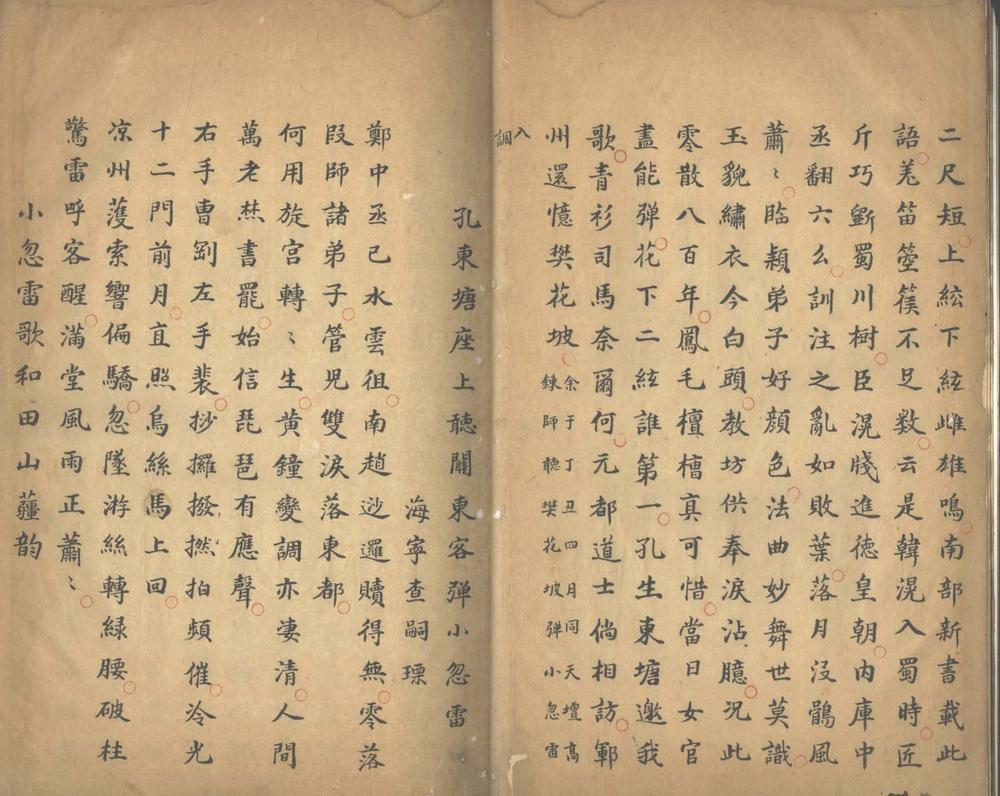 二尺短上絃下絃雌雄鳴南部新書載此
語羗笛箜篌不足数云是韓滉入蜀時匠
斤巧斵蜀川樹臣滉牋進德皇朝內庫中
丞翻六么訓注之亂如敗葉落月沒鶻風
蕭〻臨穎弟子好顔色法曲妙舞世莫識
玉貌繡衣今白頭教坊供奉淚沾臆況此
零散八百年鳳毛檀槽真可惜當日女官
盡能弹花下二絃誰第一孔生東塘邀我
歌青衫司馬奈爾何元都道士倘相訪鄆
州還憶樊花坡
余于丁丑四月同天壇高
錬師聽樊花坡弹小忽雷
入
調
孔東塘座上聽關東客弹小忽雷
海寧查嗣瑮
鄭中丞已水雲徂南趙逤邏贖得無零落
段師諸弟子管児雙淚落東都
何用旋宮轉〻生黄鐘變調亦凄清人間
萬老焚書罷始信琵琶有應聲
右手曹剛左手裴抄攞撥撚拍頻催冷光
十二門前月直照烏絲馬上回
凉州蒦索響偏驕忽墜游絲轉緑腰破柱
驚雷呼客醒滿堂風雨正蕭〻
小忽雷歌和田山薑韵